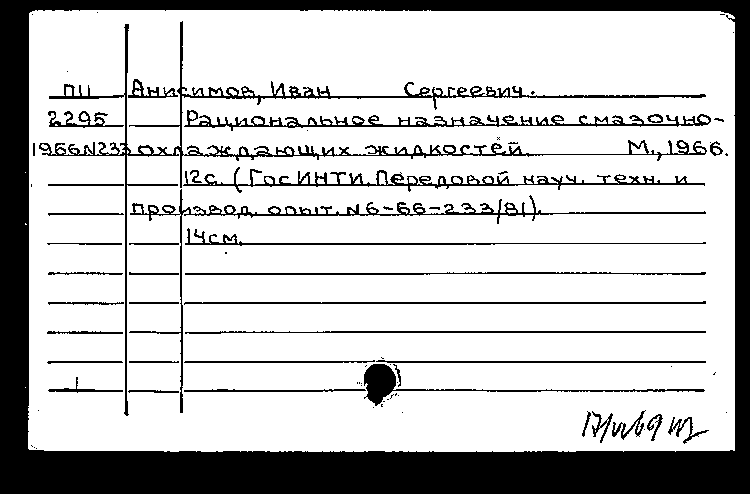 П11 Анисимов, Иван Сергеевич.
2295 Рациональное назначение смазочно-
1966N233 охлаждающих жидкостей. М., 1966.
12с. (ГосИНТИ. Передовой науч. техн. и
производ. опыт. N6-66-233/81).
14см.